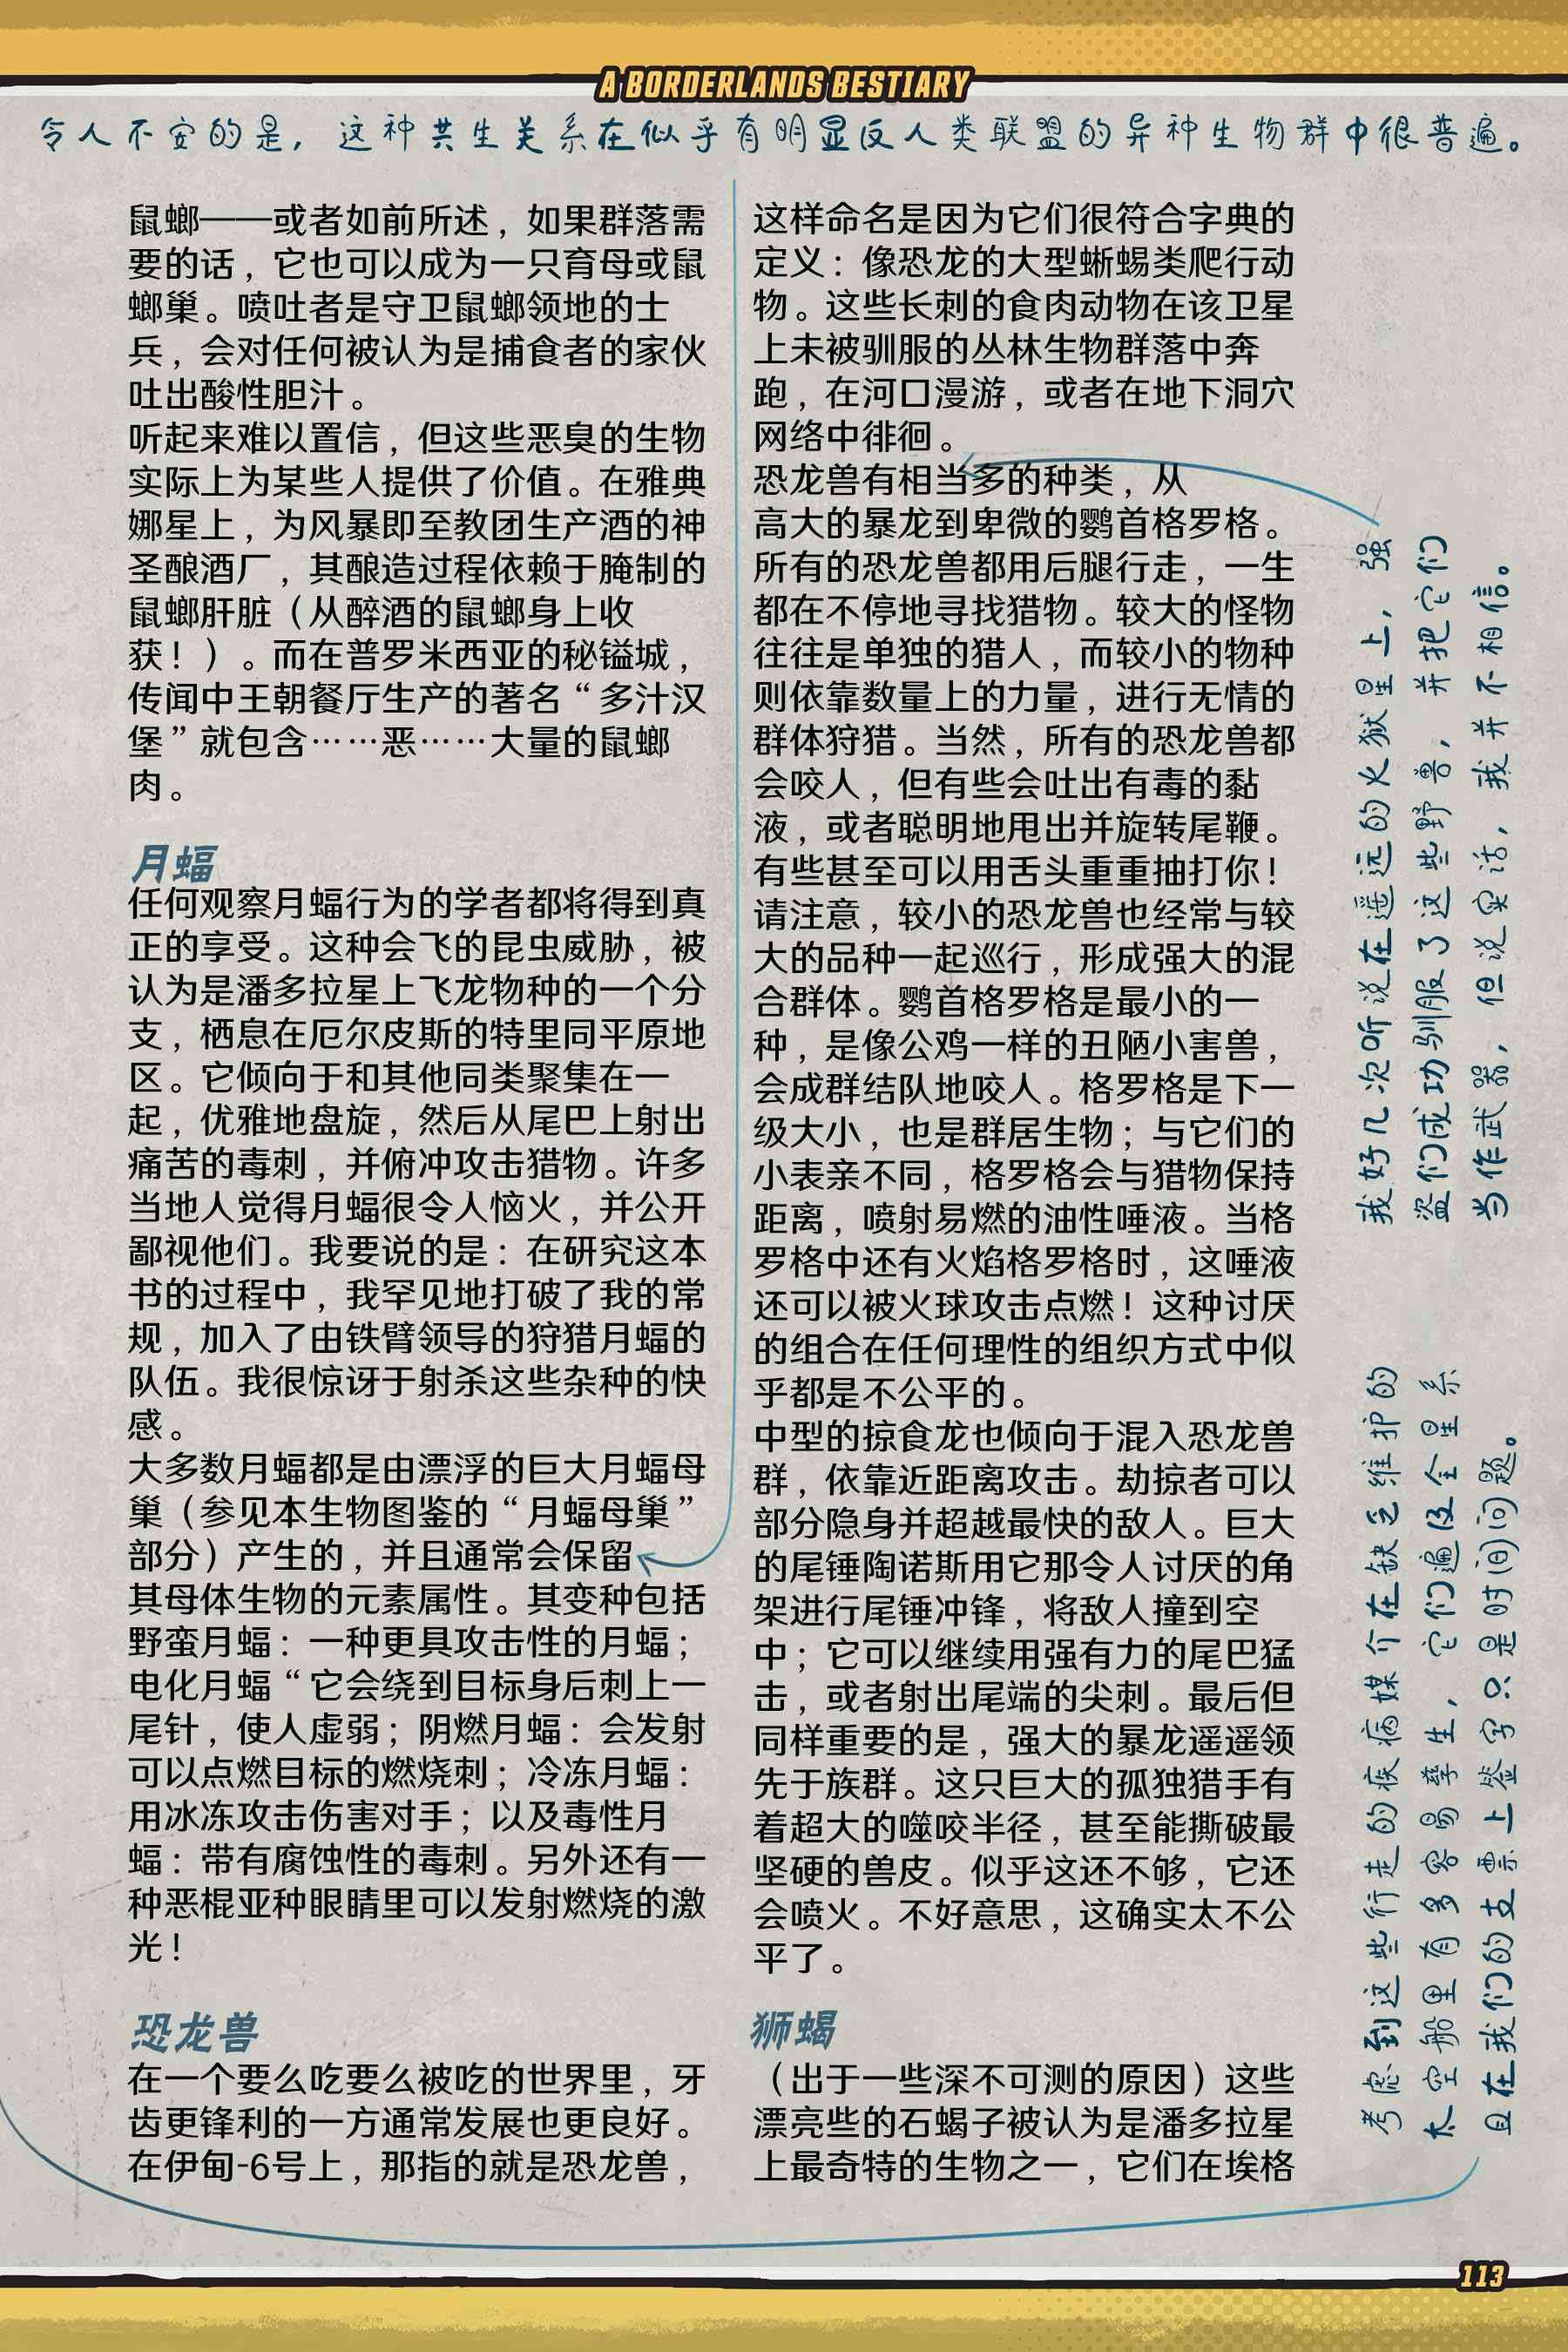 A BORDERLANDS BESTIARY
令人不安的是，这种共生关系在似乎有明显反人类联盟的异种生物群中很普遍。
鼠螂——或者如前所述，如果群落需
要的话，它也可以成为一只育母或鼠
螂巢。喷吐者是守卫鼠螂领地的士
兵，会对任何被认为是捕食者的家伙
吐出酸性胆汁。
听起来难以置信，但这些恶臭的生物
实际上为某些人提供了价值。在雅典
娜星上，为风暴即至教团生产酒的神
圣酿酒厂，其酿造过程依赖于腌制的
鼠螂肝脏（从醉酒的鼠螂身上收
获！）。而在普罗米西亚的秘镒城，
传闻中王朝餐厅生产的著名“多汁汉
堡”就包含……恶……大量的鼠螂
肉。
月蝠
任何观察月蝠行为的学者都将得到真
正的享受。这种会飞的昆虫威胁，被
认为是潘多拉星上飞龙物种的一个分
支，栖息在厄尔皮斯的特里同平原地
区。它倾向于和其他同类聚集在一
起，优雅地盘旋，然后从尾巴上射出
痛苦的毒刺，并俯冲攻击猎物。许多
当地人觉得月蝠很令人恼火，并公开
鄙视他们。我要说的是：在研究这本
书的过程中，我罕见地打破了我的常
规，加入了由铁臂领导的狩猎月蝠的
队伍。我很惊讶于射杀这些杂种的快
感。
大多数月蝠都是由漂浮的巨大月蝠母
巢（参见本生物图鉴的“月蝠母巢”
部分）产生的，并且通常会保留
其母体生物的元素属性。其变种包括
野蛮月蝠：一种更具攻击性的月蝠；
电化月蝠“它会绕到目标身后刺上一
尾针，使人虚弱；阴燃月蝠：会发射
可以点燃目标的燃烧刺；冷冻月蝠：
用冰冻攻击伤害对手；以及毒性月
蝠：带有腐蚀性的毒刺。另外还有一
种恶棍亚种眼睛里可以发射燃烧的激
光！
恐龙兽
在一个要么吃要么被吃的世界里，牙
齿更锋利的一方通常发展也更良好。
在伊甸-6号上，那指的就是恐龙兽，
这样命名是因为它们很符合字典的
定义：像恐龙的大型蜥蜴类爬行动
物。这些长刺的食肉动物在该卫星
上未被驯服的丛林生物群落中奔
跑，在河口漫游，或者在地下洞穴
网络中徘徊。
恐龙兽有相当多的种类，从
高大的暴龙到卑微的鹦首格罗格。
所有的恐龙兽都用后腿行走，一生
都在不停地寻找猎物。较大的怪物
往往是单独的猎人，而较小的物种
则依靠数量上的力量，进行无情的
群体狩猎。当然，所有的恐龙兽都
会咬人，但有些会吐出有毒的黏
液，或者聪明地甩出并旋转尾鞭。
有些甚至可以用舌头重重抽打你！
请注意，较小的恐龙兽也经常与较
大的品种一起巡行，形成强大的混
合群体。鹦首格罗格是最小的一
种，是像公鸡一样的丑陋小害兽，
会成群结队地咬人。格罗格是下一
级大小，也是群居生物；与它们的
小表亲不同，格罗格会与猎物保持
距离，喷射易燃的油性唾液。当格
罗格中还有火焰格罗格时，这唾液
还可以被火球攻击点燃！这种讨厌
的组合在任何理性的组织方式中似
乎都是不公平的。
中型的掠食龙也倾向于混入恐龙兽
群，依靠近距离攻击。劫掠者可以
部分隐身并超越最快的敌人。巨大
的尾锤陶诺斯用它那令人讨厌的角
架进行尾锤冲锋，将敌人撞到空
中；它可以继续用强有力的尾巴猛
击，或者射出尾端的尖刺。最后但
同样重要的是，强大的暴龙遥遥领
先于族群。这只巨大的孤独猎手有
着超大的噬咬半径，甚至能撕破最
坚硬的兽皮。似乎这还不够，它还
会喷火。不好意思，这确实太不公
平了。
狮蝎
（出于一些深不可测的原因）这些
漂亮些的石蝎子被认为是潘多拉星
上最奇特的生物之一，它们在埃格
我好几次听说在遥远的火狱星上，强
盗们成功驯服了这些野兽，并把它们
当作武器，但说实话，我并不相信。
考虑到这些行走的疾病媒介在缺乏维护的
太空船里有多容易孳生，它们遍及全星系
且在我们的支票上签字只是时间问题。
113